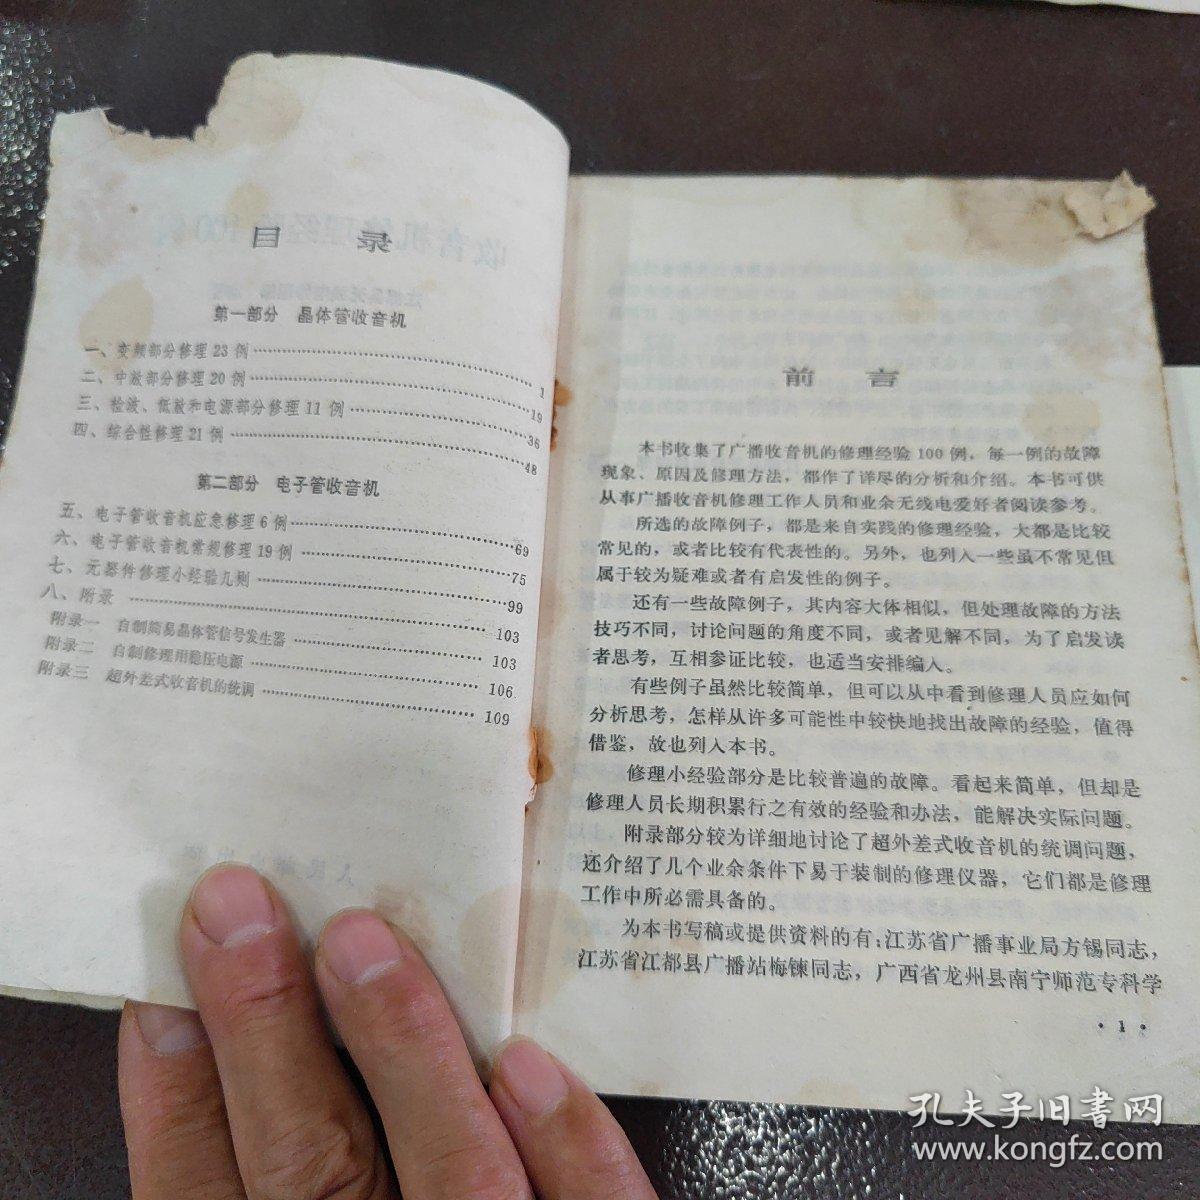 目 录
第一部分 晶体管收音机
一、变频部分修理23例 1
二、中放部分修理20例 19
三、检波、低放和电源部分修理11例 36
四、综合性修理21例 48
第二部分 电子管收音机
五、电子管收音机应急修理6例 69
六、电子管收音机常规修理19例 75
七、元器件修理小经验几则 99
八、附录 103
附录一 自制简易晶体管信号发生器 103
附录二 自制修理用稳压电源 106
附录三 超外差式收音机的统调 109
前 言
本书收集了广播收音机的修理经验100例，每一例的故障
现象、原因及修理方法，都作了详尽的分析和介绍。本书可供
从事广播收音机修理工作人员和业余无线电爱好者阅读参考。
所选的故障例子，都是来自实践的修理经验，大都是比较
常见的，或者比较有代表性的。另外，也列入一些虽不常见但
属于较为疑难或者有启发性的例子。
还有一些故障例子，其内容大体相似，但处理故障的方法
技巧不同，讨论问题的角度不同，或者见解不同，为了启发读
者思考，互相参证比较，也适当安排编入。
有些例子虽然比较简单，但可以从中看到修理人员应如何
分析思考，怎样从许多可能性中较快地找出故障的经验，值得
借鉴，故也列入本书。
修理小经验部分是比较普遍的故障。看起来简单，但却是
修理人员长期积累行之有效的经验和办法，能解决实际问题。
附录部分较为详细地讨论了超外差式收音机的统调问题，
还介绍了几个业余条件下易于装制的修理仪器，它们都是修理
工作中所必需具备的。
为本书写稿或提供资料的有：江苏省广播事业局方锡同志，
江苏省江都县广播站梅铼同志，广西省龙州县南宁师范专科学
• 1 •
孔夫子旧书网
www.kongfz.com